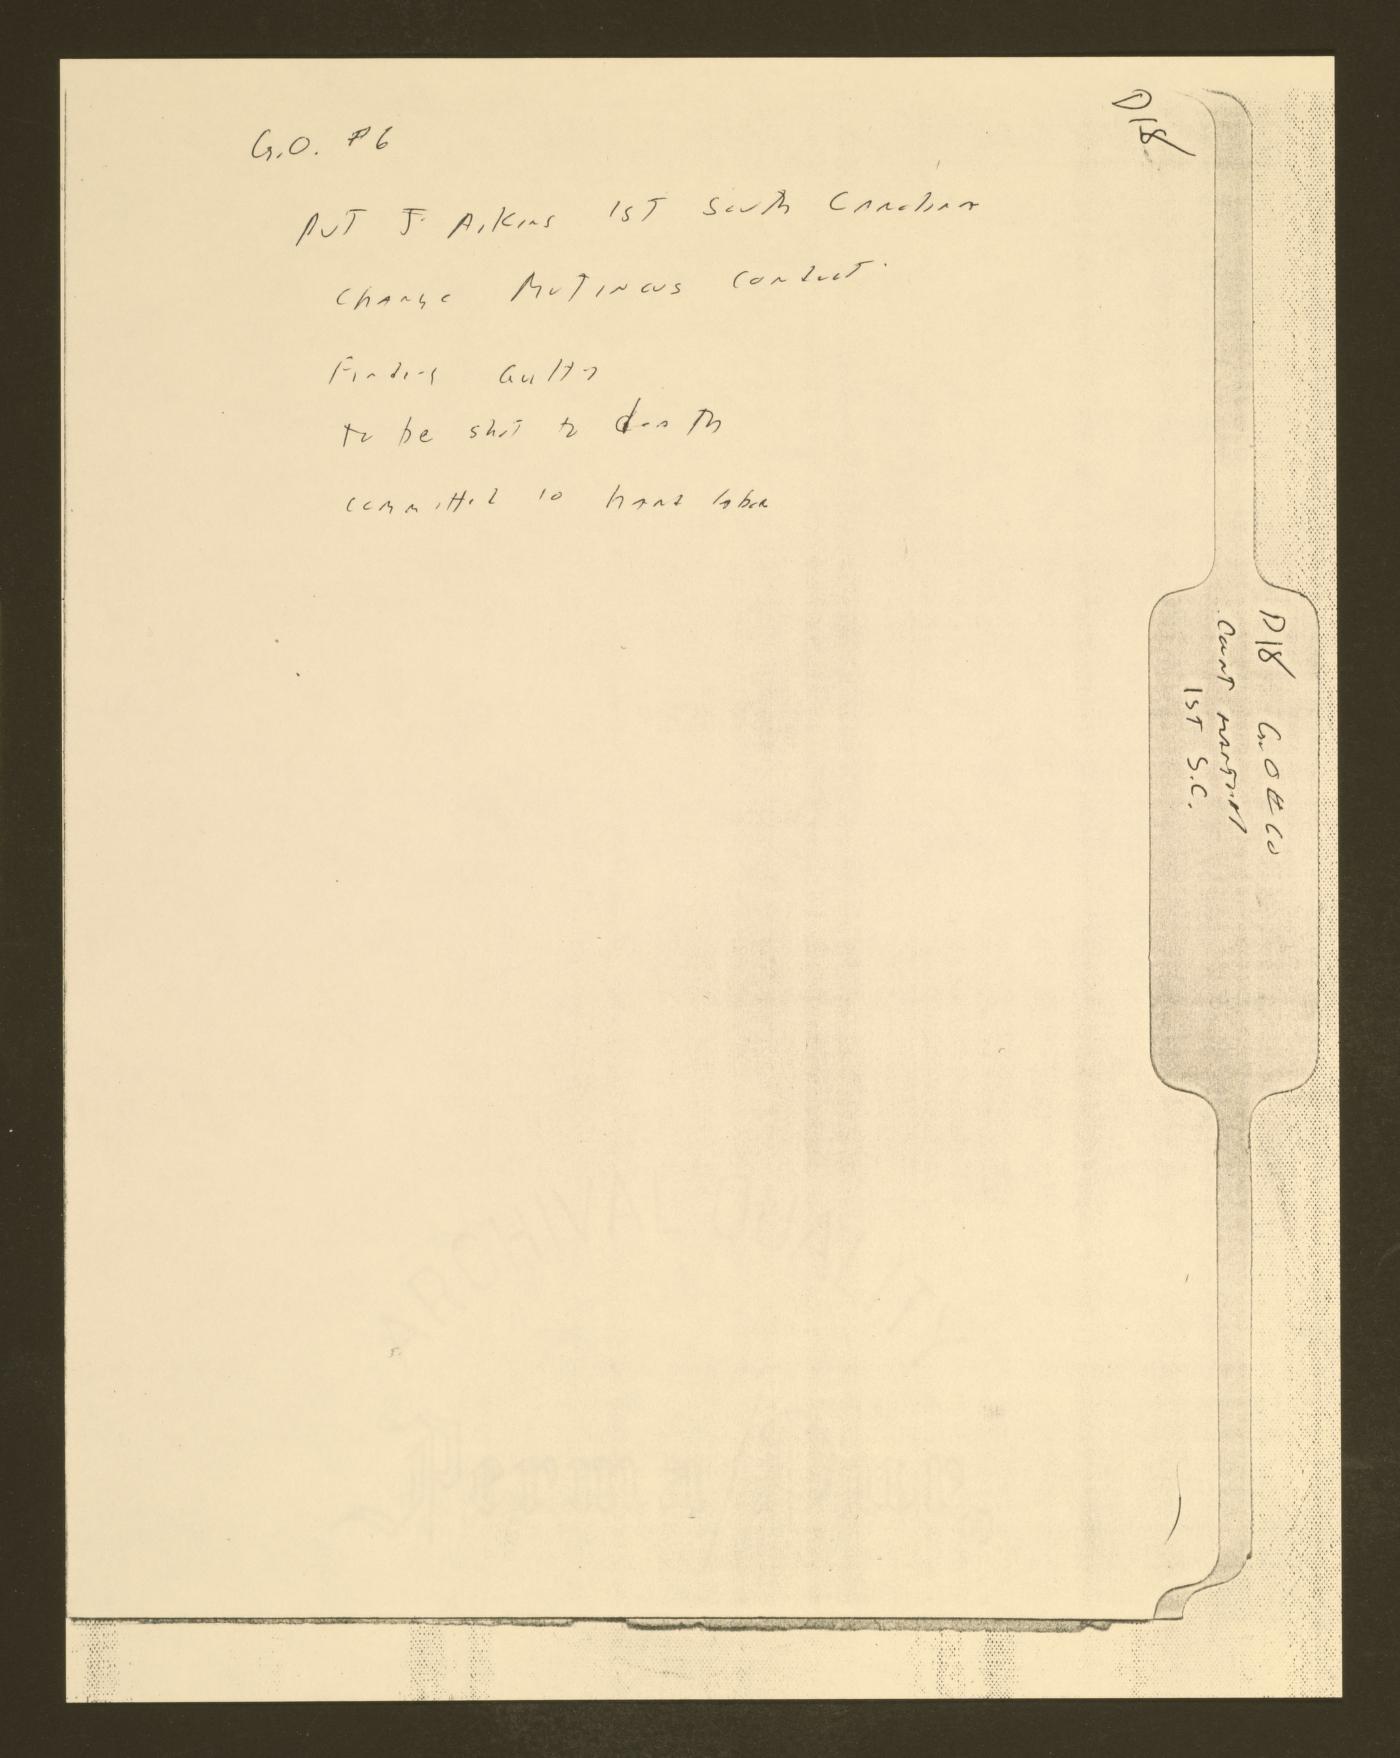 D18
G.O. #6
Pvt J. Aikins 1st South Carolina
Charge Mutinous Conduct.
Finding Guilty
to be shot to death
committed to hard labor
D18 G.O # 60
Court martial
1st S.C.
ARCHIVAL QUALITY